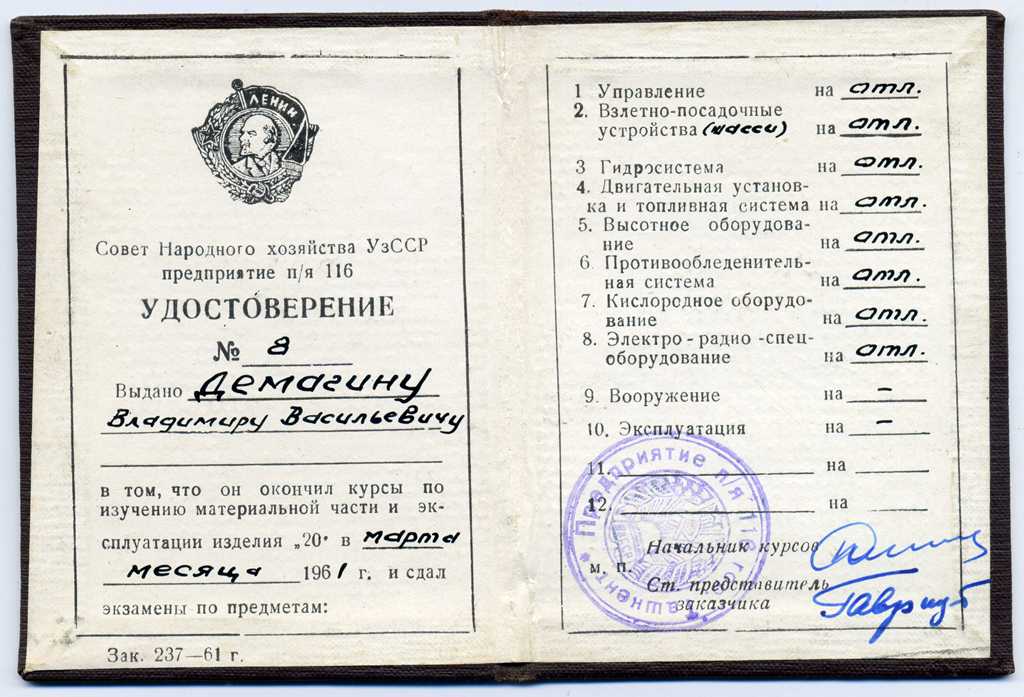 ЛЕНИН
Совет Народного хозяйства УзССР
предприятие п/я 116
УДОСТОВЕРЕНИЕ
№ 8
Выдано Демагину
Владимиру Васильевичу
в том, что он окончил курсы по
изучению материальной части и эк-
сплуатации изделия „20“ в марта
месяца 1961 г. и сдал
экзамены по предметам:
Зак. 237—61 г.
1 Управление на отл.
2. Взлетно-посадочные
устройства (шасси) на отл.
3 Гидросистема на отл.
4. Двигательная установ-
ка и топливная система на отл.
5. Высотное оборудова-
ние на отл.
6. Противообледенитель-
ная система на отл.
7. Кислородное оборудо-
вание на отл.
8. Электро-радио-спец-
оборудование на отл.
9. Вооружение на –
10. Эксплуатация на –
11. на
12. на
Предприятие п/я 116 г. Ташкент
Начальник курсов
м. п.
Ст. представитель
заказчика